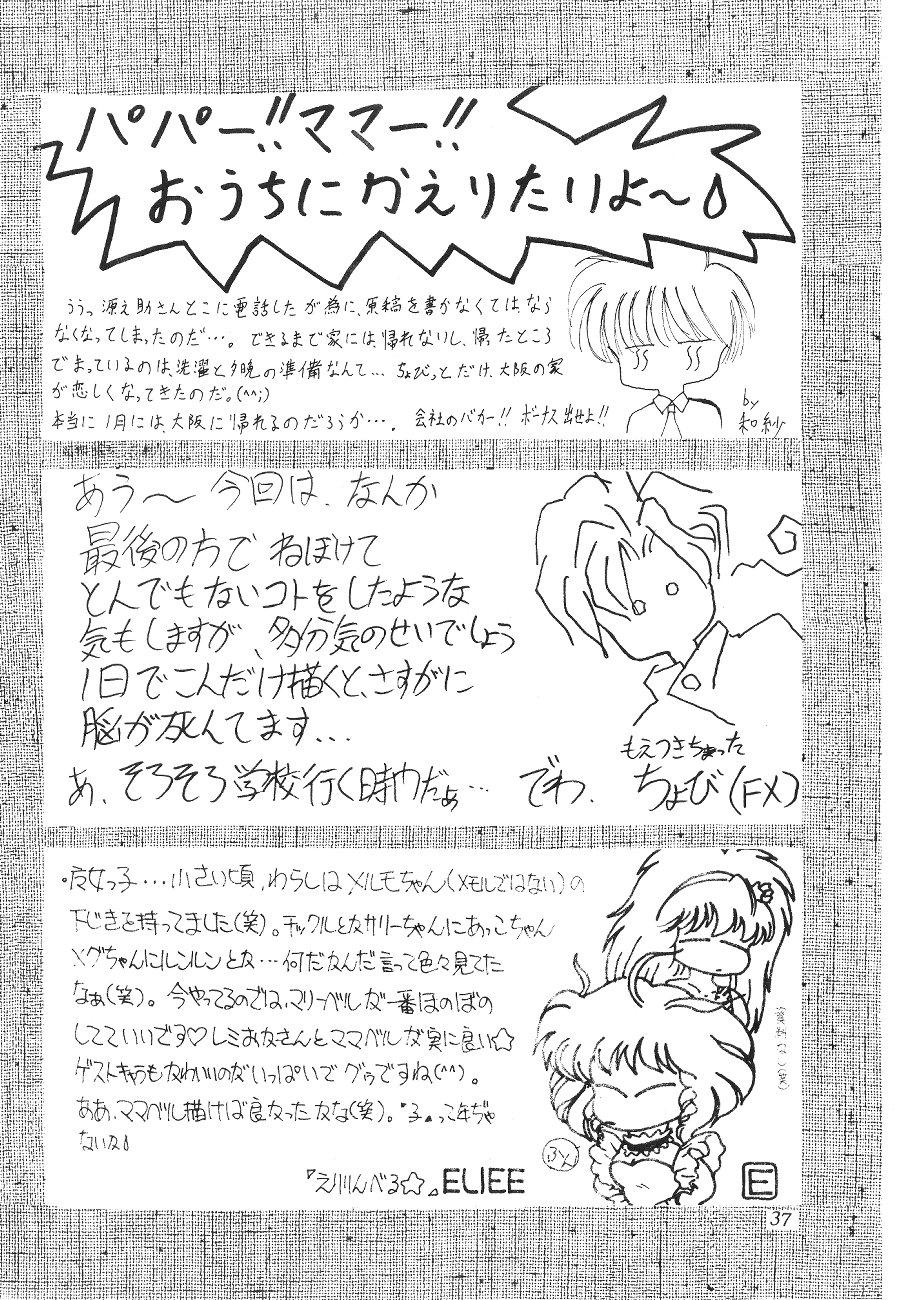 パパー!!ママー!!
おうちにかえりたいよ〜
ううっ源之助さんとこに電話したが為に、原稿を書かなくてはなら
なくなってしまったのだ…。できるまで家には帰れないし、帰ったところ
でまっているのは、洗濯と夕晩の準備なんて…ちょびっとだけ、大阪の家
が恋しくなってきたのだ。(^^;)
本当に1月には、大阪に帰れるのだろうか…。会社のバカー!!ボーナス出せよ!!
by
和紗
あう〜今回は、なんか
最後の方でねぼけて
とんでもないコトをしたような
気もしますが、多分気のせいでしょう
1日でこんだけ描くと、さすがに
脳が死んてます...
もえつきちゃった
あ、そろそろ学校行く時間だぁ… でわ、ちょび(FX)
・女っ子…小さい頃,わらしはメルモちゃん(メモルではない)の
下じきを持ってました(笑)。チックルとかサリーちゃんにあっこちゃん
メグちゃんにルンルンとか…何だかんだ言って色々見てた
なぁ(笑)。今やってるのでは、マリーベルが一番ほのぼの
してていいです♡レミおかさんとママベルが実に良い☆
ゲストキャラもかわいいのがいっぱいでグゥですね(^^)。
ああ、ママベル描けば良かったかな(笑)。"子"って年ぢゃ
ないか♪
『えりりんべる☆』ELIEE
E
37